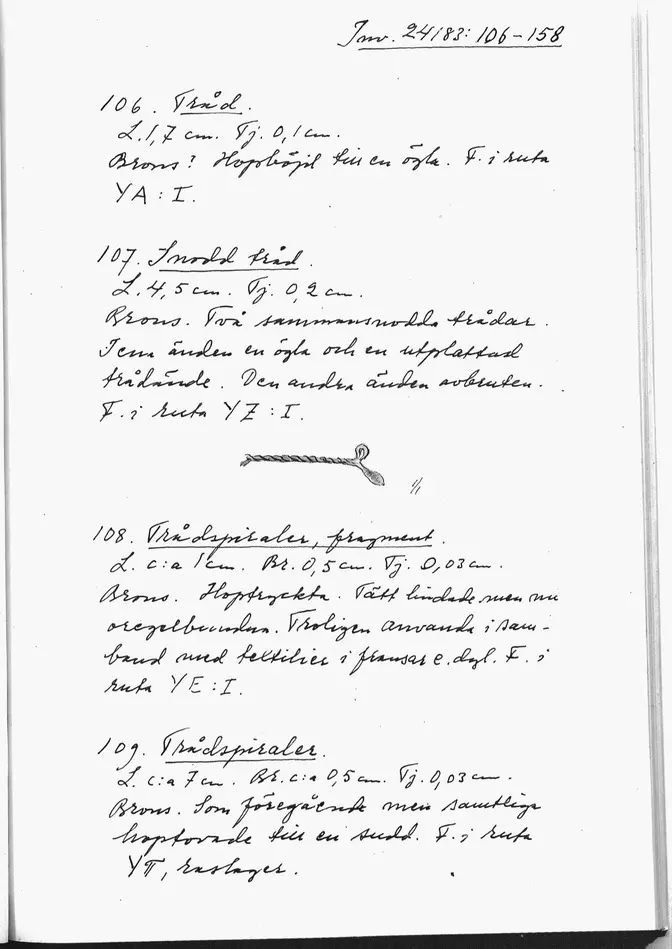 Inv. 24183: 106-158
106. Tråd.
L. 1,7 cm. Tj. 0,1 cm.
Brons? Hopböjd till en ögla. F. i ruta
YA: I.
107. Snodd tråd.
L. 4,5 cm. Tj. 0,2 cm.
Brons. Två sammansnodda trådar.
I ena änden en ögla och en utplattad
trådände. Den andra änden avbruten.
F. i ruta YZ: I.
1/1
108. Trådspiraler, fragment.
L. c:a 1 cm. Br. 0,5 cm. Tj. 0,03 cm.
Brons. Hoptryckta. Tätt lindade men nu
oregelbundna. Troligen använda i sam-
band med textilier i fransar e.dyl. F. i
ruta YE: I.
109. Trådspiraler.
L. c:a 7 cm. Br. c:a 0,5 cm. Tj. 0,03 cm.
Brons. Som föregående men samtliga
hoptovade till en sudd. F. i ruta
, raslager.